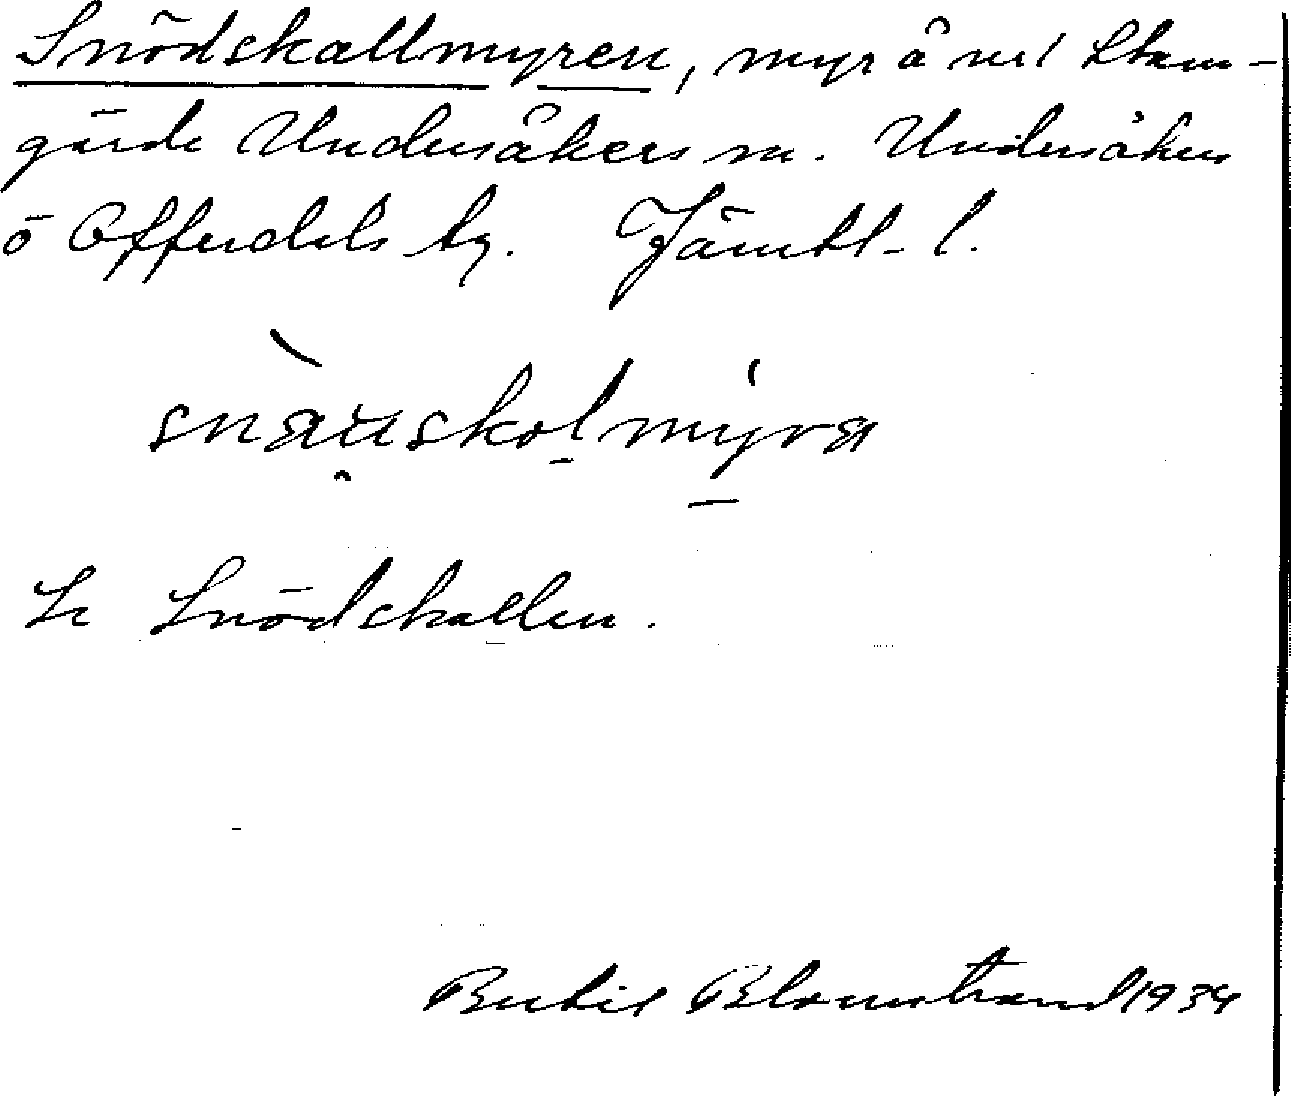 Snödskallmyren, myr å nr 1 Stam-
gärde Undersåkers sn. Undersåkers
o Offerdals tg. Jämtl. l.
snäuskolmyra
Se Snödskallen.
Bertil Blomstrand 1934